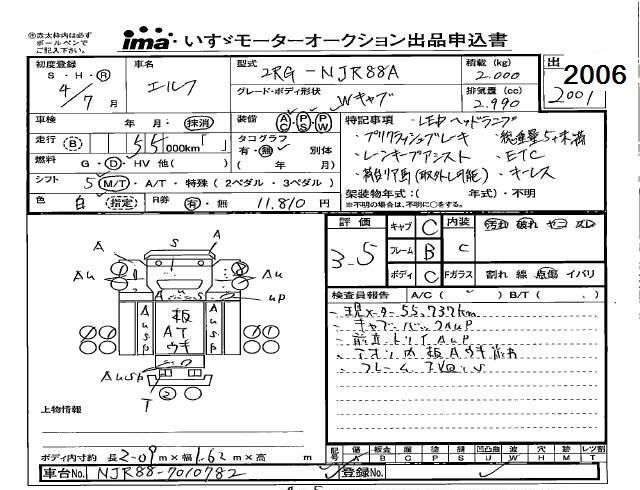 ㊟赤太枠内は必ず
ボールペンで
ご記入下さい。
ima・いすゞモーターオークション出品申込書
初度登録 車名 エルフ 型式 2RG-NJR88A 積載 (kg) 2.000 出 2006
S・H・Ⓡ 4/7 月 グレード・ボディ形状 Wキャブ 排気量 (cc) 2.990 2001
車検 年 月・抹消 装備 AC・PS・PW 特記事項 ・LEDヘッドランプ
走行 (B) 55,000km タコグラフ 有・無 別体 ・プリクラッシュブレーキ ・総重量5t未満
燃料 G・D・HV 他( ) ( 年 月) ・レーンキープアシスト ・ETC
シフト 5 M/T・A/T・特殊 (2ペダル・3ペダル) ・キーレス
架装物年式:( 年式)・不明
※不明の場合は、不明に○をする。
色 白 (指定) R券 有・無 11.810 円
評価 3.5 キャブ C 内装 C 汚れ 破れ ヤニ スレ
フレーム B
ボディ C Fガラス 割れ 線 点傷 イバリ
検査員報告 A/C ( ) B/T ( 、 )
現メーター55,737km
キャブバックAUP
A S A
AU AU
UP
AUSP 板 AT ウキ AUSP
AUSP
T 2
上物情報
ボディ内寸約 長 2.09 m×幅 1.62 m×高 m
記号 傷 A 板金 B 腐 C 塗 P 錆 S 凹凸曲 U 波 W 穴 H 跡 M レツ割 T
車台No. NJR88-7010782 登録No.